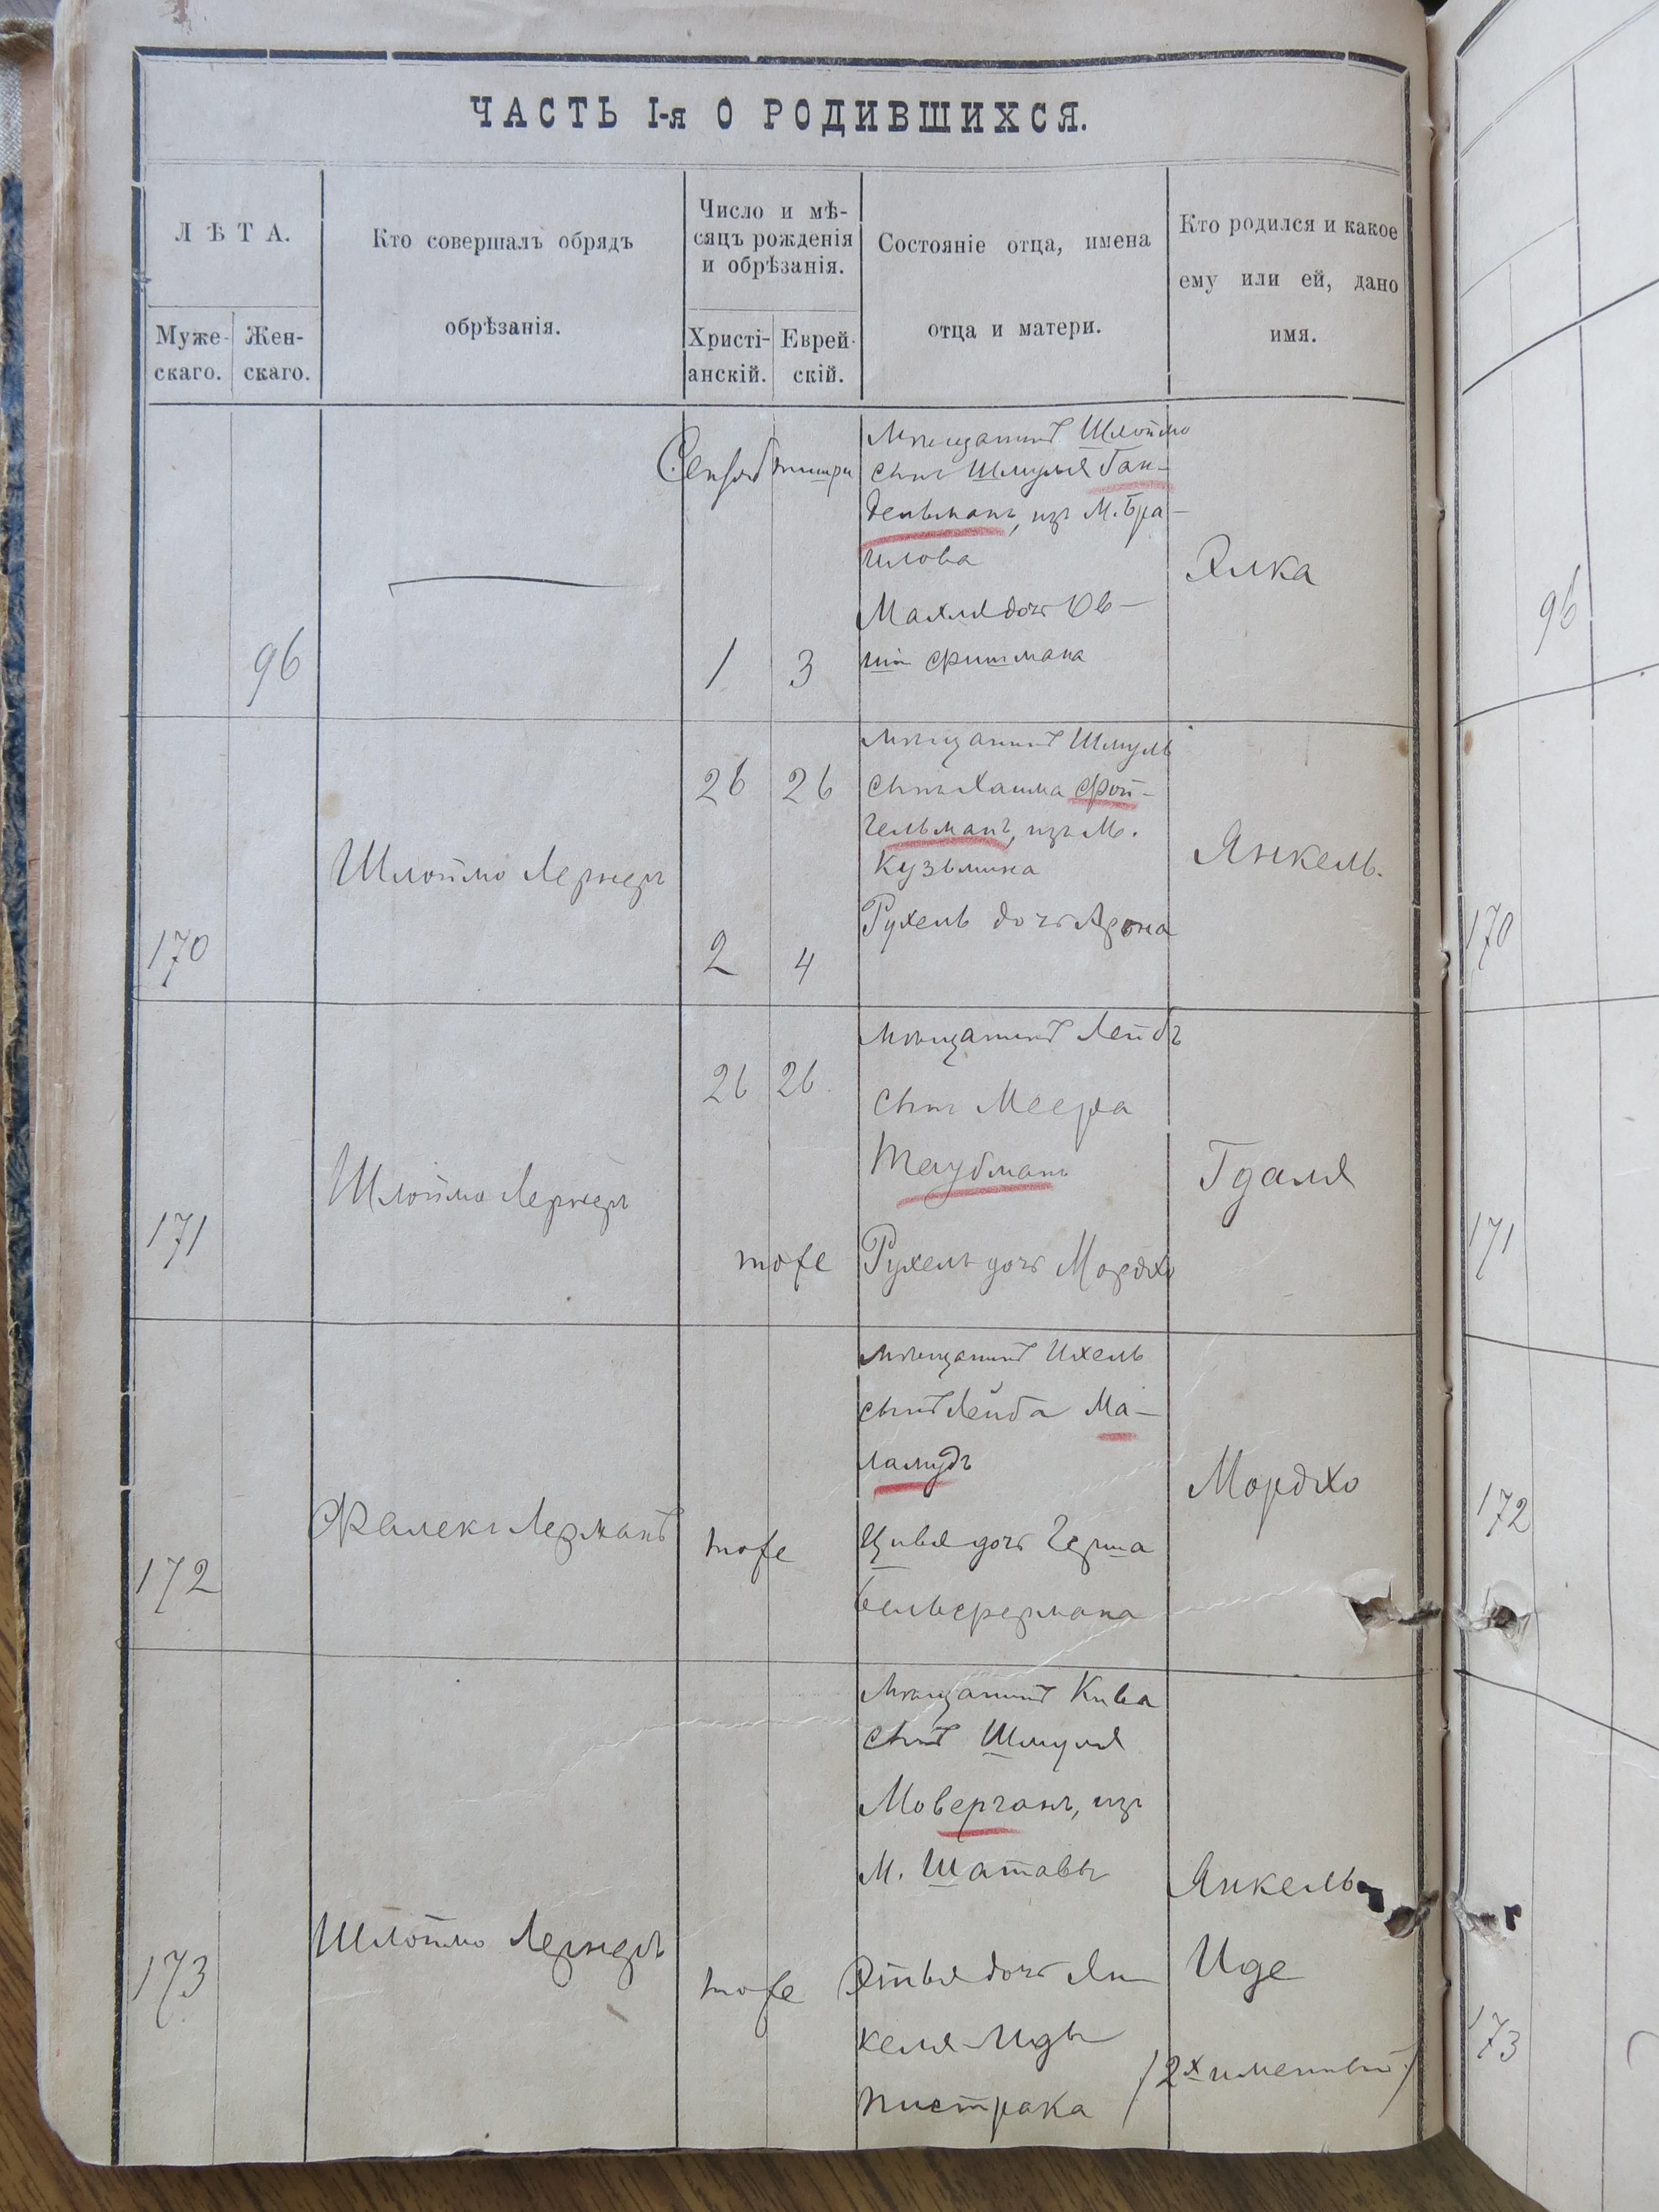 ЧАСТЬ I-я О РОДИВШИХСЯ.
ЛѢТА.
Муже-
скаго.
Жен-
скаго.
Кто совершалъ обрядъ
обрѣзанія.
Число и мѣ-
сяцъ рожденія
и обрѣзанія.
Христі-
анскій.
Еврей-
скій.
Состояніе отца, имена
отца и матери.
Кто родился и какое
ему или ей, дано
имя.
96
1
3
Мѣщанинъ Шлоймо
сынъ Шмуля Ган-
дельманъ, изъ М. Бра-
илова
Махля дочь Ов-
шіи Фишмана
Элка
96
170
Шлоймо Лернеръ
26 26
2 4
Мѣщанинъ Шмуль
сынъ Хаима Фой-
гельманъ, изъ М.
Кузьмина
Рухель дочь Арона
Янкель.
170
171
Шлоймо Лернеръ
26 26
тоже
Мѣщанинъ Лейбъ
сынъ Меера
Таубманъ
Рухель дочь Мордко
Гдаля
171
172
Фалекъ Лерманъ
тоже
Мѣщанинъ Ихель
сынъ Лейба Ма-
ламудъ
Цивья дочь Герша
Мордко
172
173
Шлоймо Лернеръ
тоже
Мѣщанинъ Кива
сынъ Шмуля
Моверганъ, изъ
М. Шатавы
Этья дочь Ян-
келя-Иды
Пистрака
Янкель-
Иде
/2х именный/
173